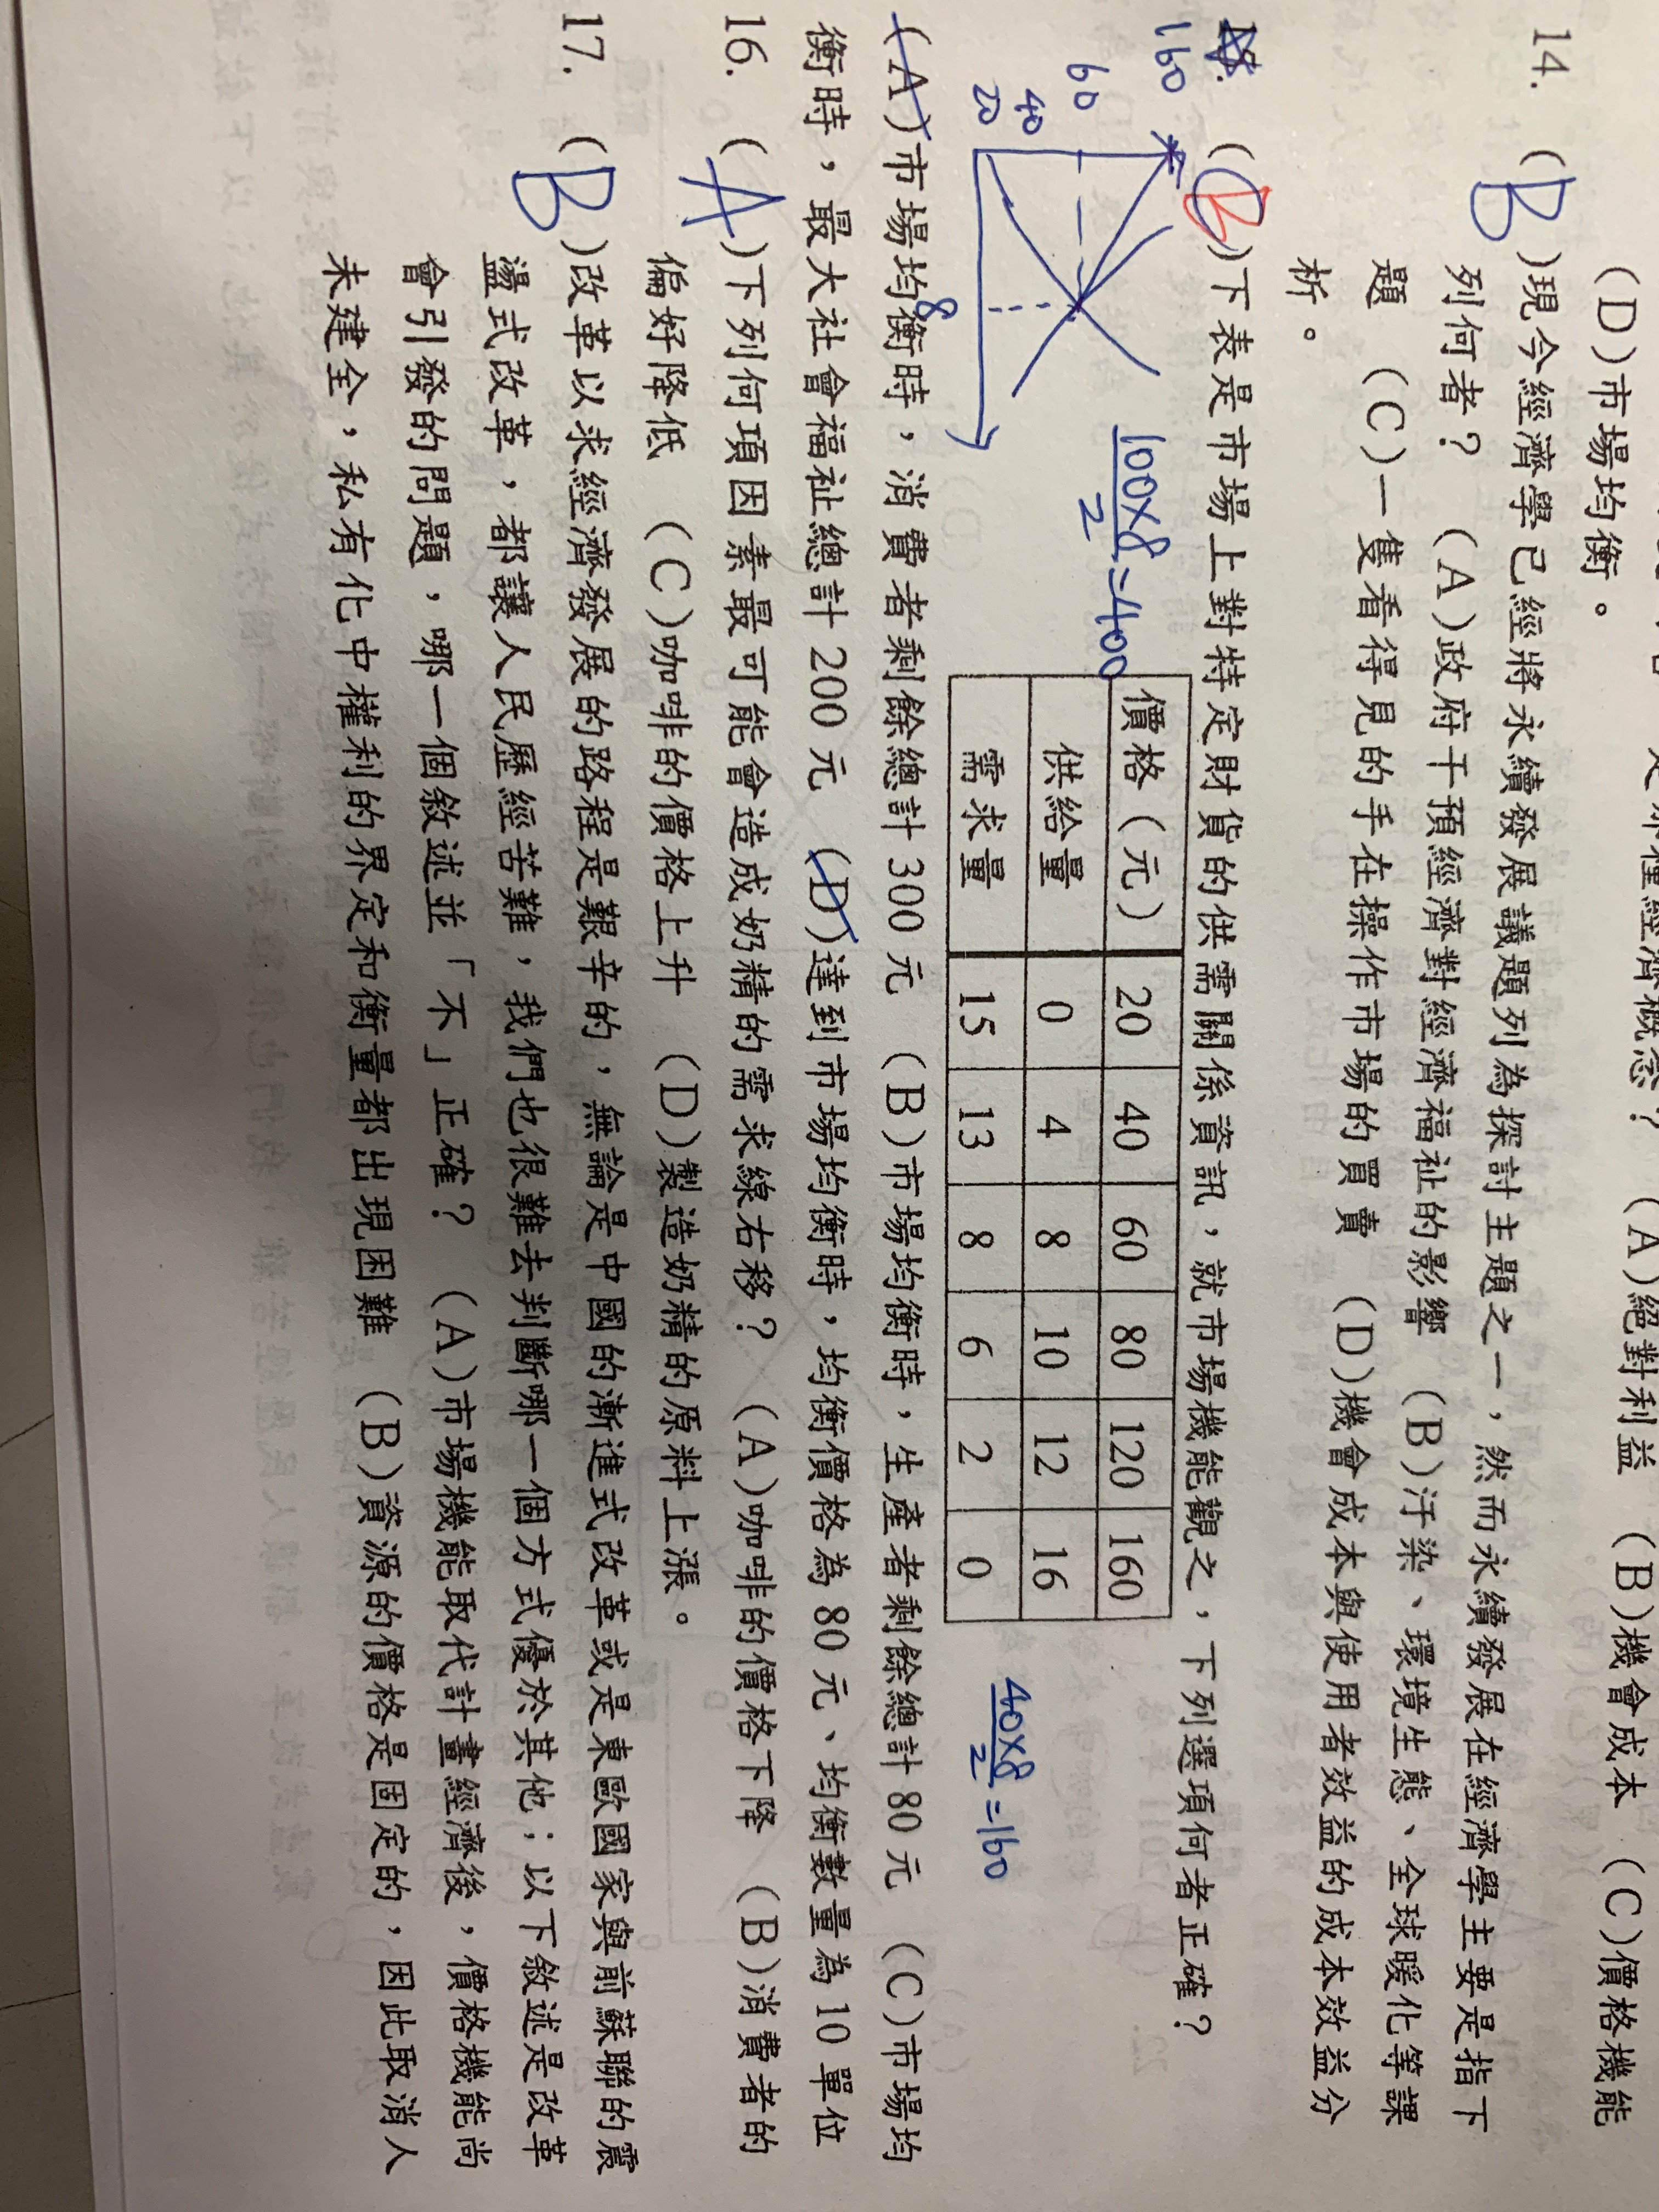 (D)市場均衡。
(A)絕對利益 (B)機會成本 (C)價格機能
14. (B)現今經濟學已經將永續發展議題列為探討主題之一，然而永續發展在經濟學主要是指下
列何者？ (A)政府干預經濟對經濟福祉的影響 (B)汙染、環境生態、全球暖化等課
題 (C)一隻看得見的手在操作市場的買賣 (D)機會成本與使用者效益的成本效益分
析。
(B)下表是市場上對特定財貨的供需關係資訊，就市場機能觀之，下列選項何者正確？
價格（元） 20 40 60 80 120 160
供給量 0 4 8 10 12 16
需求量 15 13 8 6 2 0
160
60
40
20
8
100×8/2=400
40×8/2=160
(A)市場均衡時，消費者剩餘總計 300 元 (B)市場均衡時，生產者剩餘總計 80 元 (C)市場均
衡時，最大社會福祉總計 200 元 (D)達到市場均衡時，均衡價格為 80 元、均衡數量為 10 單位
16. (A)下列何項因素最可能會造成奶精的需求線右移？ (A)咖啡的價格下降 (B)消費者的
偏好降低 (C)咖啡的價格上升 (D)製造奶精的原料上漲。
17. (B)改革以求經濟發展的路程是艱辛的，無論是中國的漸進式改革或是東歐國家與前蘇聯的震
盪式改革，都讓人民歷經苦難，我們也很難去判斷哪一個方式優於其他；以下敘述是改革
會引發的問題，哪一個敘述並「不」正確？ (A)市場機能取代計畫經濟後，價格機能尚
未建全，私有化中權利的界定和衡量都出現困難 (B)資源的價格是固定的，因此取消人